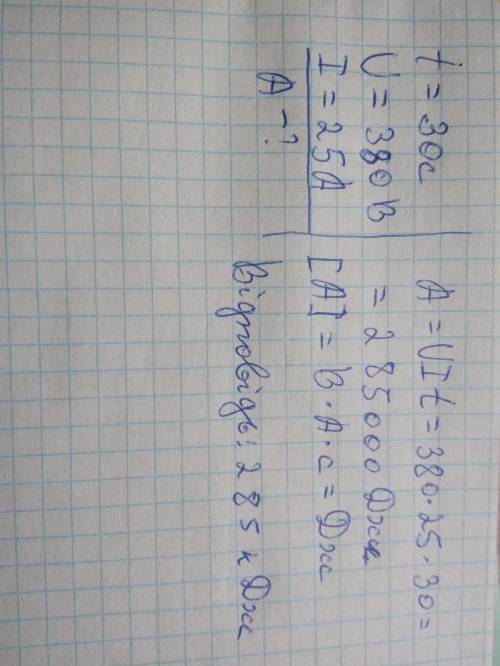 t = 30с
U = 380 В
I = 25А
А - ?
A = UIt = 380·25·30 =
= 285000 Дж
[A] = В·А·с = Дж
Відповідь: 285 кДж